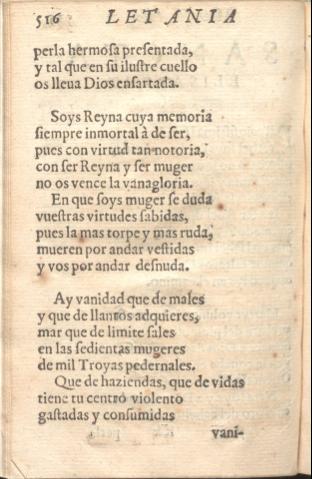 516 LETANIA
perla hermosa presentada,
y tal que en su ilustre cuello
os lleua Dios ensartada.
Soys Reyna cuya memoria
siempre inmortal à de ser,
pues con virtud tan notoria,
con ser Reyna y ser muger
no os vence la vanagloria.
En que soys muger se duda
vuestras virtudes sabidas,
pues la mas torpe y mas ruda,
mueren por andar vestidas
y vos por andar desnuda.
Ay vanidad que de males
y que de llantos adquieres,
mar que de limite sales
en las sedientas mugeres
de mil Troyas pedernales.
Que de haziendas, que de vidas
tiene tu centro violento
gastadas y consumidas
vani-